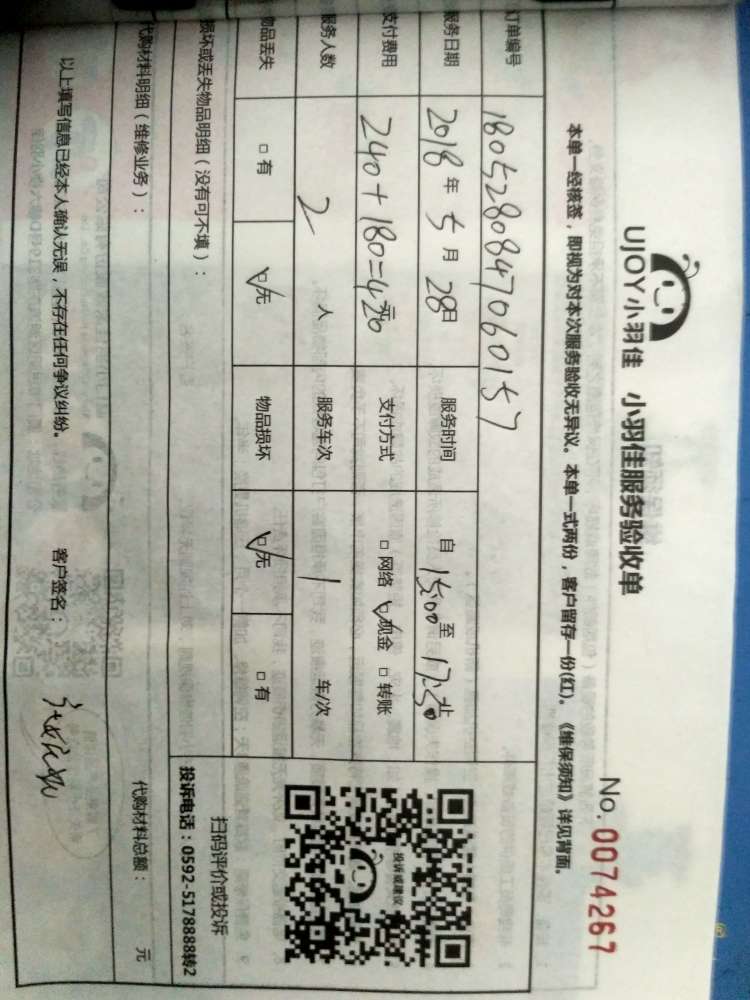 UJOY小羽佳 小羽佳服务验收单
No. 0074267
本单一经核签，即视为对本次服务验收无异议。本单一式两份，客户留存一份(红)。《维保须知》详见背面。
订单编号 1805280847060157
服务日期 2018年5月28日 服务时间 自15:00至17:30止
支付费用 240+180=420元 支付方式 □网络 ☑现金 □转账
服务人数 2人 服务车次 1车/次
物品丢失 □有 ☑无 物品损坏 ☑无 □有
投诉或建议
扫码评价或投诉
投诉电话：0592-5178888转2
损坏或丢失物品明细（没有可不填）：
代购材料明细（维修业务）： 代购材料总额： 元
以上填写信息已经本人确认无误，不存在任何争议纠纷。 客户签名：